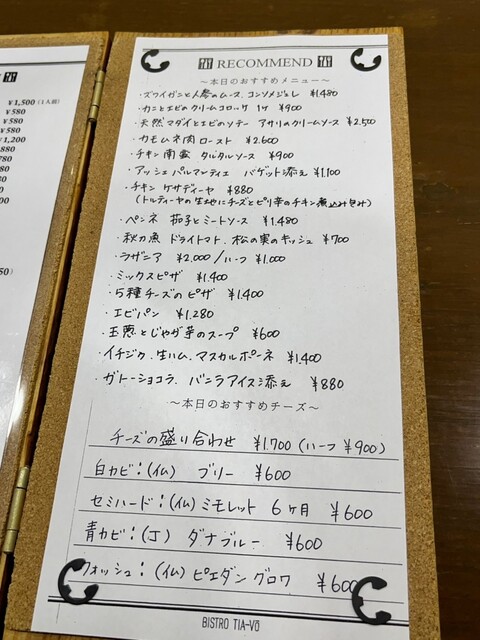 RECOMMEND
～本日のおすすめメニュー～
・ズワイガニと人参のムース、コンソメジュレ ¥1,480
・カニとエビのクリームコロッケ 1ケ ¥900
・天然マダイとエビのソテー アサリのクリームソース ¥2,500
・カモムネ肉ロースト ¥2,600
・チキン南蛮 タルタルソース ¥900
・アッシェパルマンティエ バゲット添え ¥1,100
・チキン ケサディーヤ ¥880
(トルティーヤの生地にチーズとピリ辛のチキン煮込み包み)
・ペンネ 茄子とミートソース ¥1,480
・秋刀魚 ドライトマト、松の実のキッシュ ¥700
・ラザニア ¥2,000/ハーフ ¥1,000
・ミックスピザ ¥1,400
・5種チーズのピザ ¥1,400
・エビパン ¥1,280
・玉葱とじゃが芋のスープ ¥600
・イチジク、生ハム、マスカルポーネ ¥1,400
・ガトーショコラ、バニラアイス添え ¥880
～本日のおすすめチーズ～
チーズの盛り合わせ ¥1,700 (ハーフ ¥900)
白カビ:(仏) ブリー ¥600
セミハード:(仏) ミモレット 6ヶ月 ¥600
青カビ:(J) ダナブルー ¥600
ウォッシュ:(仏) ピエダングロワ ¥600
BISTRO TIA-VO
¥1,500 (1人前)
¥580
¥580
¥580
¥580
¥1,200
880
780